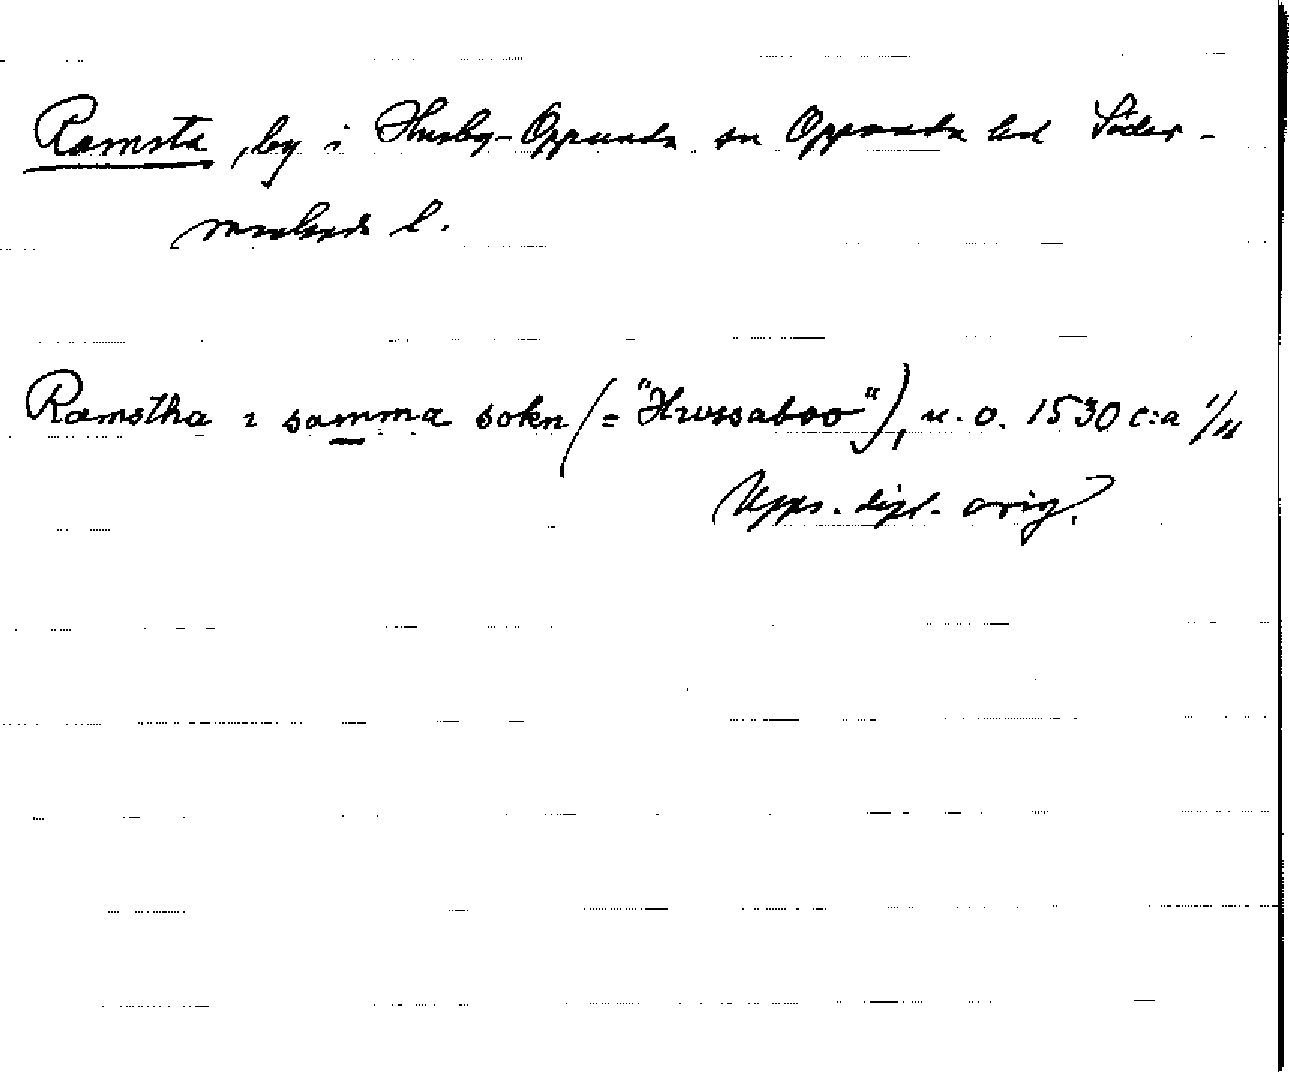 Ramsta, by i Husby-Oppunda sn Oppunda hd Söder-
manlands l.
Ramstha i samma sokn (= "Hwssaboo"), u.o. 1530 c:a 1/11
Upps. dipl. orig.